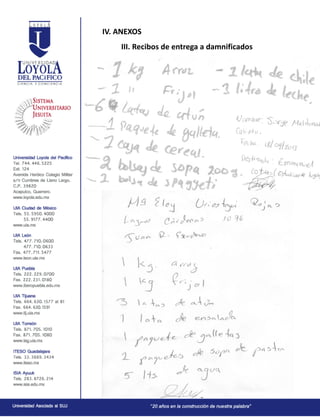 IV. ANEXOS
III. Recibos de entrega a damnificados
LOYOLA
UNIVERSIDAD
LOYOLA
DEL PACÍFICO
CIENCIA Y CONCIENCIA
SISTEMA
UNIVERSITARIO
JESUITA
Universidad Loyola del Pacífico
Tel. 744. 446.5225
Ext. 124
Avenida Heróico Colegio Militar
s/n Cumbres de Llano Largo,
C.P. 39820
Acapulco, Guerrero.
www.loyola.edu.mx
UIA Ciudad de México
Tels. 55. 5950. 4000
55. 9177. 4400
www.uia.mx
UIA León
Tels. 477. 710. 0600
477. 710. 0633
Fax. 477. 711. 5477
www.leon.uia.mx
UIA Puebla
Tels. 222. 229. 0700
Fax. 222. 231. 0180
www.iberopuebla.edu.mx
UIA Tijuana
Tels. 664. 630. 1577 al 81
Fax. 664. 630. 1591
www.tij.uia.mx
UIA Torreón
Tels. 871. 705. 1010
Fax. 871. 705. 1080
www.lag.uia.mx
ITESO Guadalajara
Tels. 33. 3669. 3434
www.iteso.mx
ISIA Ayuuk
Tels. 283. 8726. 214
www.isia.edu.mx
- 1 kg Arroz - 1 lata de chile
- 1 " Frijol - 1 litro de leche,
- 6 Latas de atún
- 1 Paquete de galleta.
- 1 caja de cereal.
- 2 bolsas de sopa 200 g.
- 1 bolsa de spagueti
Jorge Maldonado
Emmanuel
Ma Eley Rojas
Lázaro Cárdenas
Juan R.
1 kg. arroz
1 kg frijol
3 latas de atún
1 lata de ensalada
1 paquete de galletas
2 paquetes de sopa de pasta
5 lts. de agua
Universidad Asociada al SUJ
"20 años en la construcción de nuestra palabra"